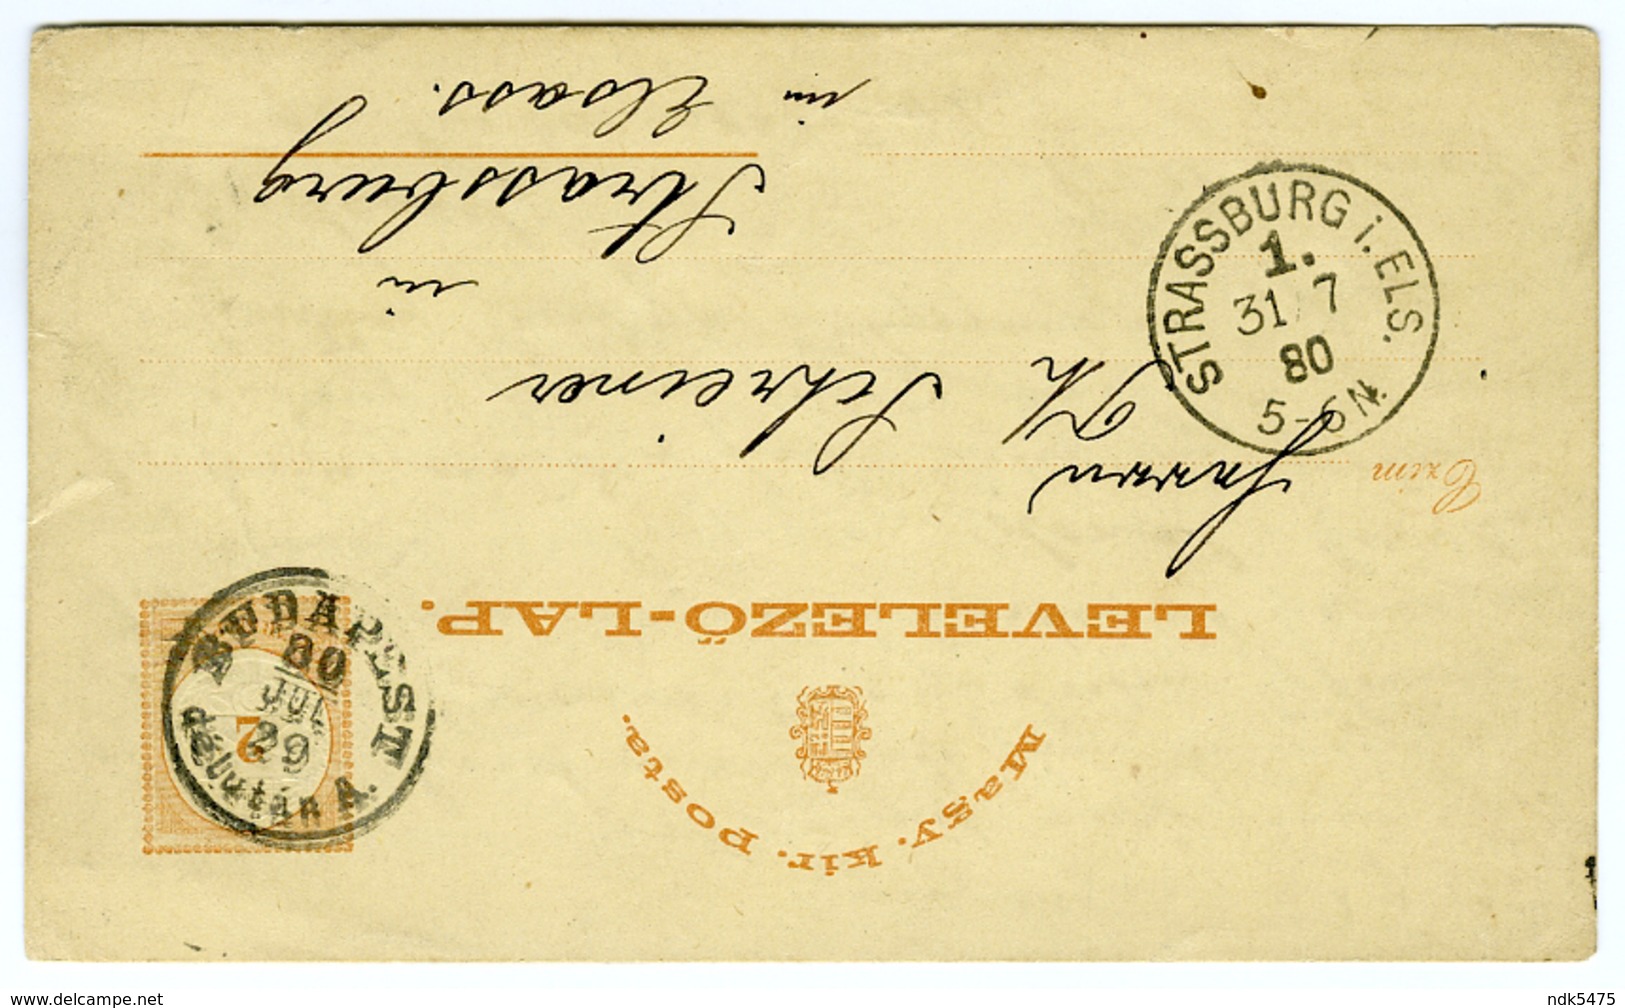 Magy. kir. posta.
LEVELEZŐ-LAP.
Czim
Herrn
Th Schreiner
in
Strassburg
in Elsass.
2
BUDAPEST
80
JUL
29
délután A.
STRASSBURG i. ELS.
1.
31/7
80
5-6N.
delcampe.net
ndk5475